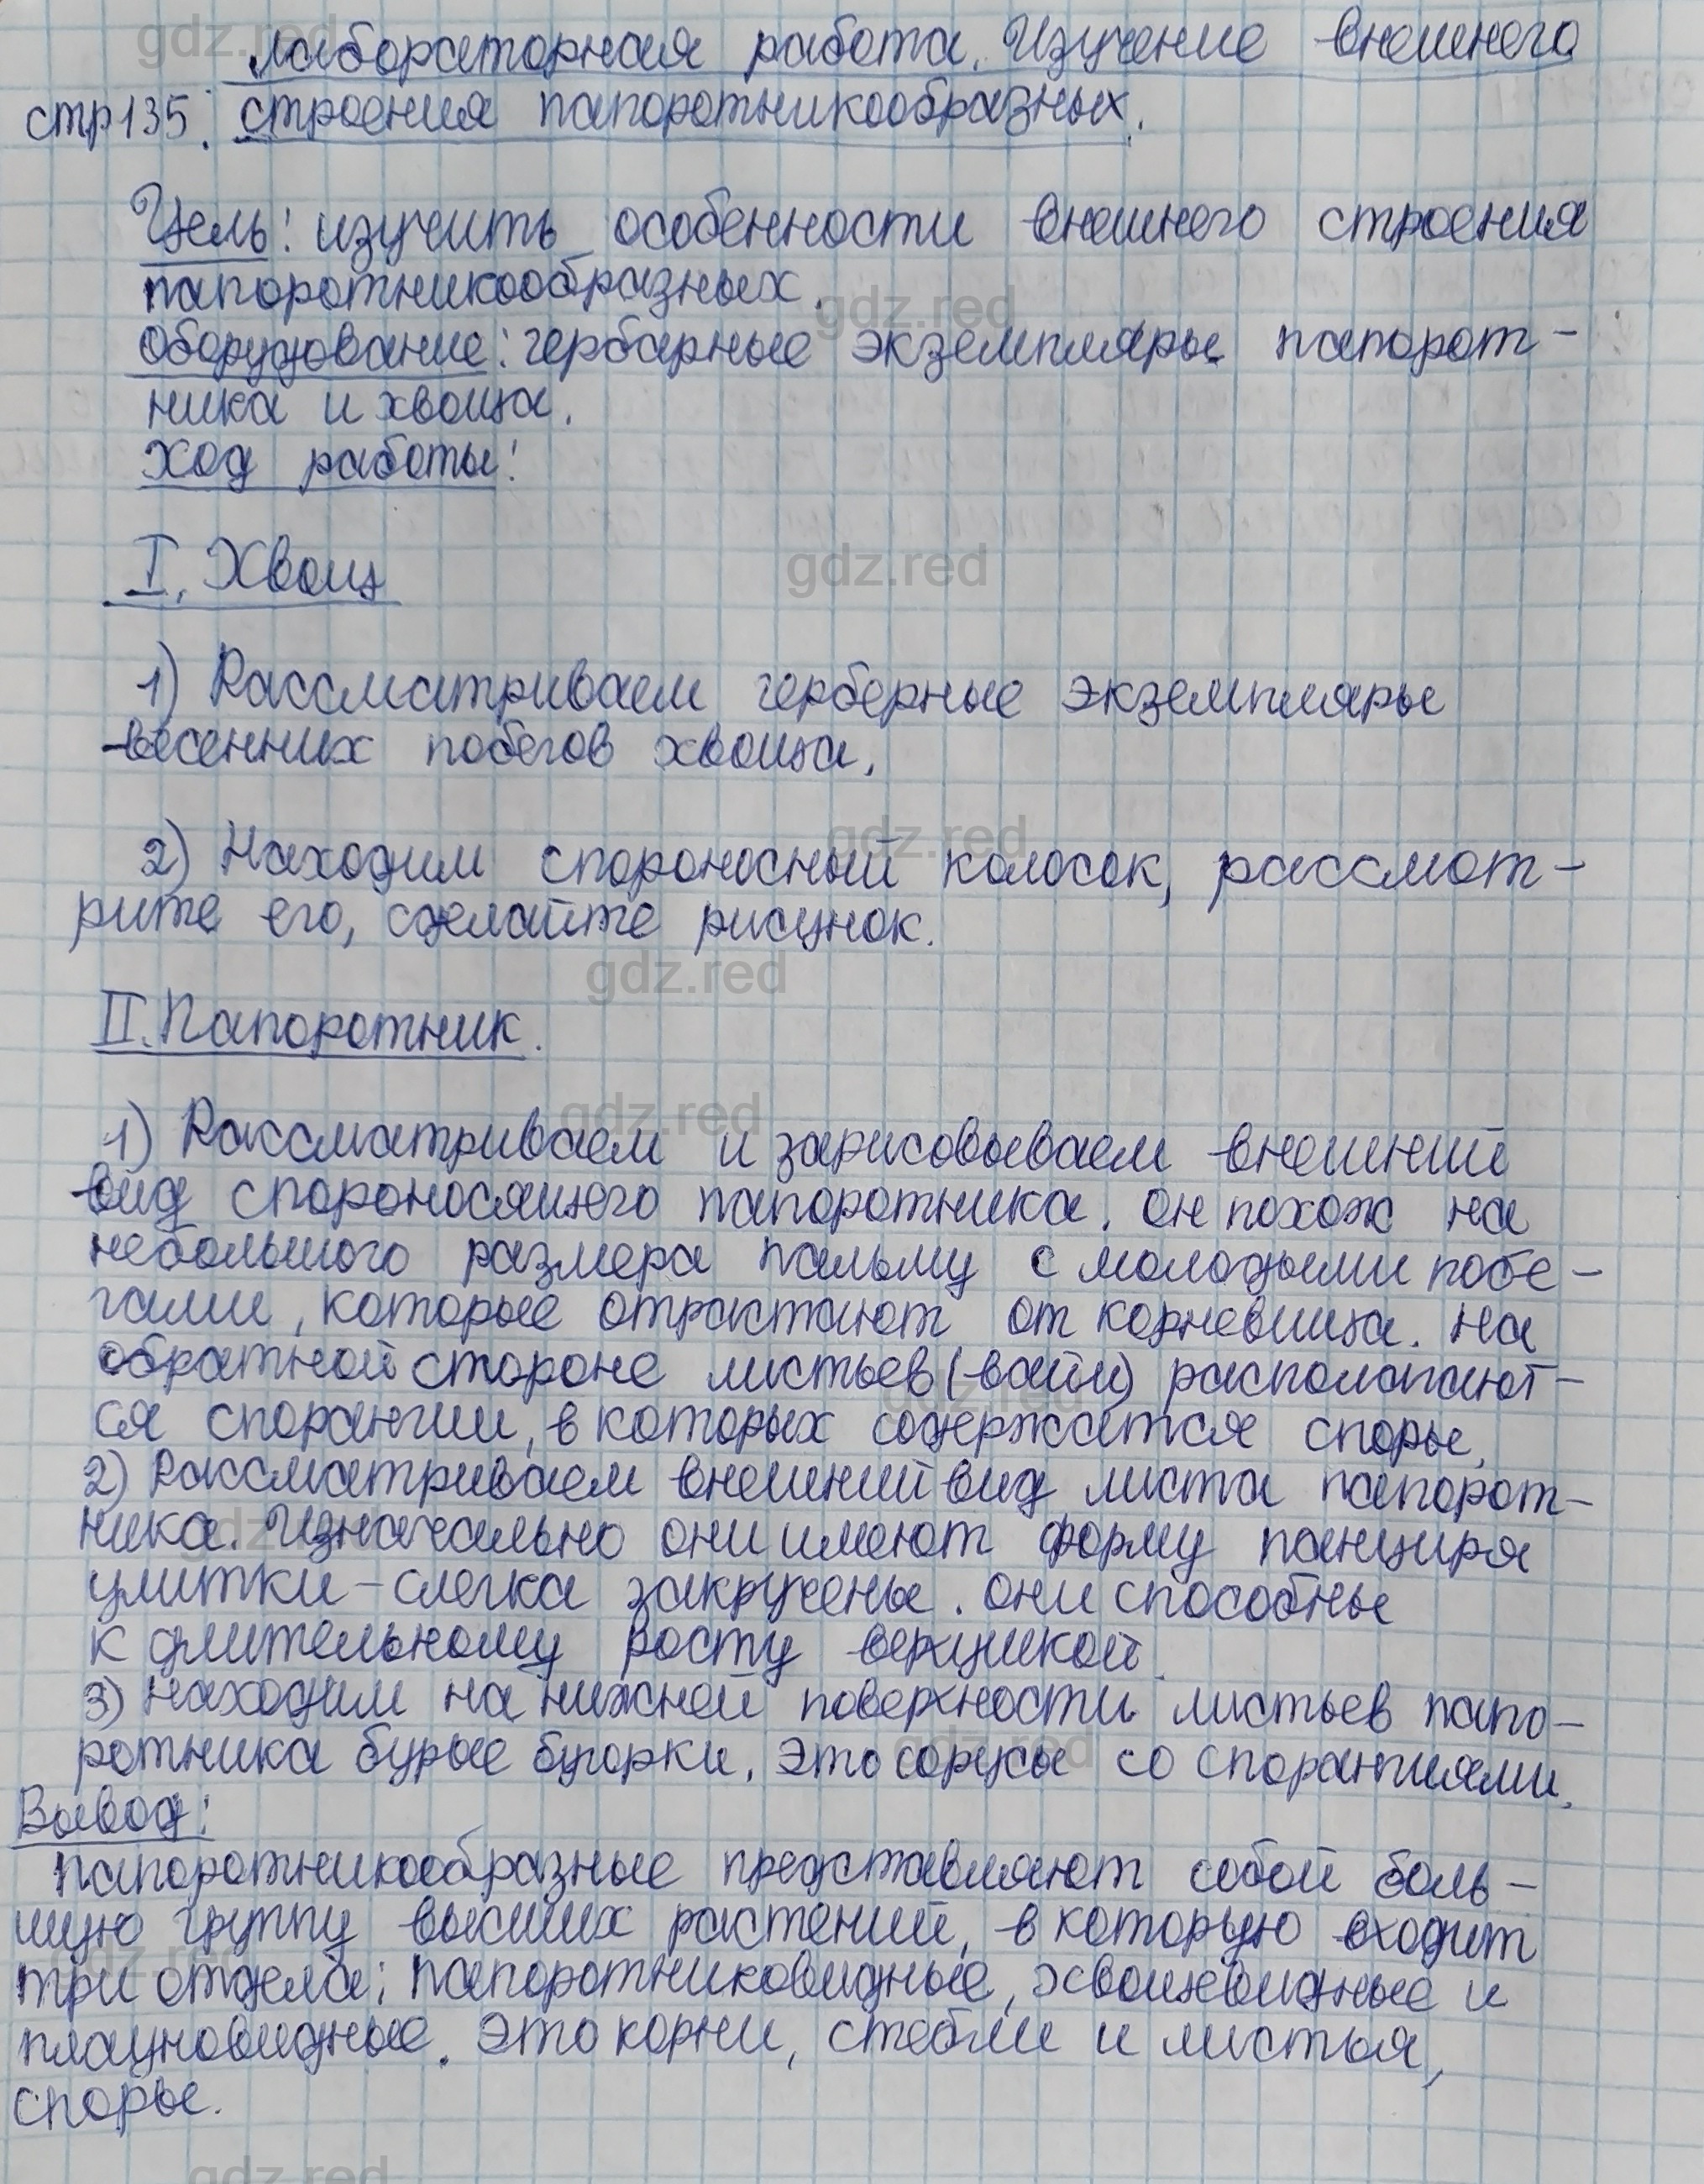 Лабораторная работа. Изучение внешнего
стр 135. строения папоротникообразных.
Цель: изучить особенности внешнего строения
папоротникообразных.
Оборудование: гербарные экземпляры папорот-
ника и хвоща.
Ход работы:
I. Хвощ
1) Рассматриваем герберные экземпляры
весенних побегов хвоща.
2) Находим спороносный колосок, рассмот-
рите его, сделайте рисунок.
II. Папоротник.
1) Рассматриваем и зарисовываем внешний
вид спороносящего папоротника. Он похож на
небольшого размера пальму с молодыми побе-
гами, которые отрастают от корневища. На
обратной стороне листьев (вайи) располагают-
ся спорангии, в которых содержатся споры.
2) Рассматриваем внешний вид листа папорот-
ника. Изначально они имеют форму панциря
улитки - слегка закручены. Они способны
к длительному росту верхушкой.
3) Находим на нижней поверхности листьев папо-
ротника бурые бугорки. Это сорусы со спорангиями.
Вывод:
Папоротникообразные представляют собой боль-
шую группу высших растений, в которую входит
три отдела: папоротниковидные, хвощевидные и
плауновидные. Это корни, стебли и листья,
споры.
gdz.red
gdz.red
gdz.red
gdz.red
gdz.red
gdz.red
gdz.red
gdz.red
gdz.red
gdz.red
gdz.red